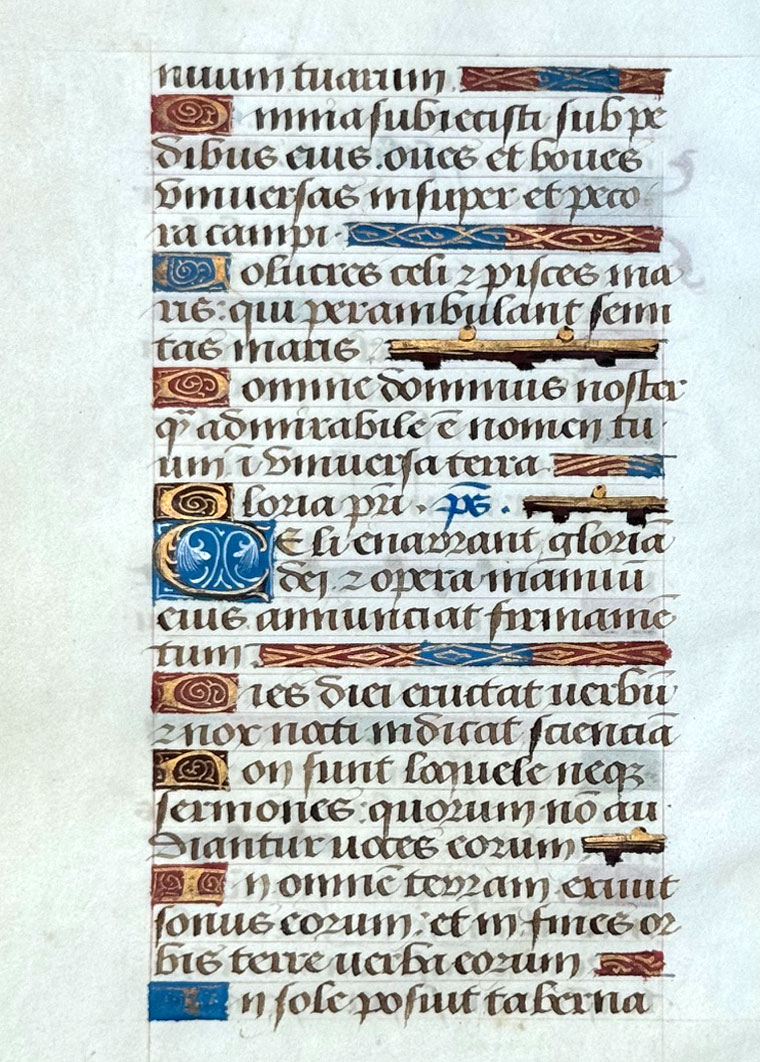 nuum tuarum.
Omnia subiecisti sub pe
dibus eius. oues et boues
vniuersas insuper et peco
ra campi.
Volucres celi ⁊ pisces ma
ris: qui perambulant semi
tas maris
Domine dominus noster
qͣ admirabile ē nomen tu
um ī vniuersa terra
Gloria pr̄i. ps̄.
CEli enarrant gloriā
dei ⁊ opera manuū
eius annunciat firmamē
tum.
Dies diei eructat uerbū
⁊ nox nocti indicat scienciā
Non sunt loquele neqꝫ
sermones: quorum nō au
diantur uoces eorum
In omnē terram exiuit
sonus eorum: et in fines or
bis terre uerba eorum
In sole posuit taberna